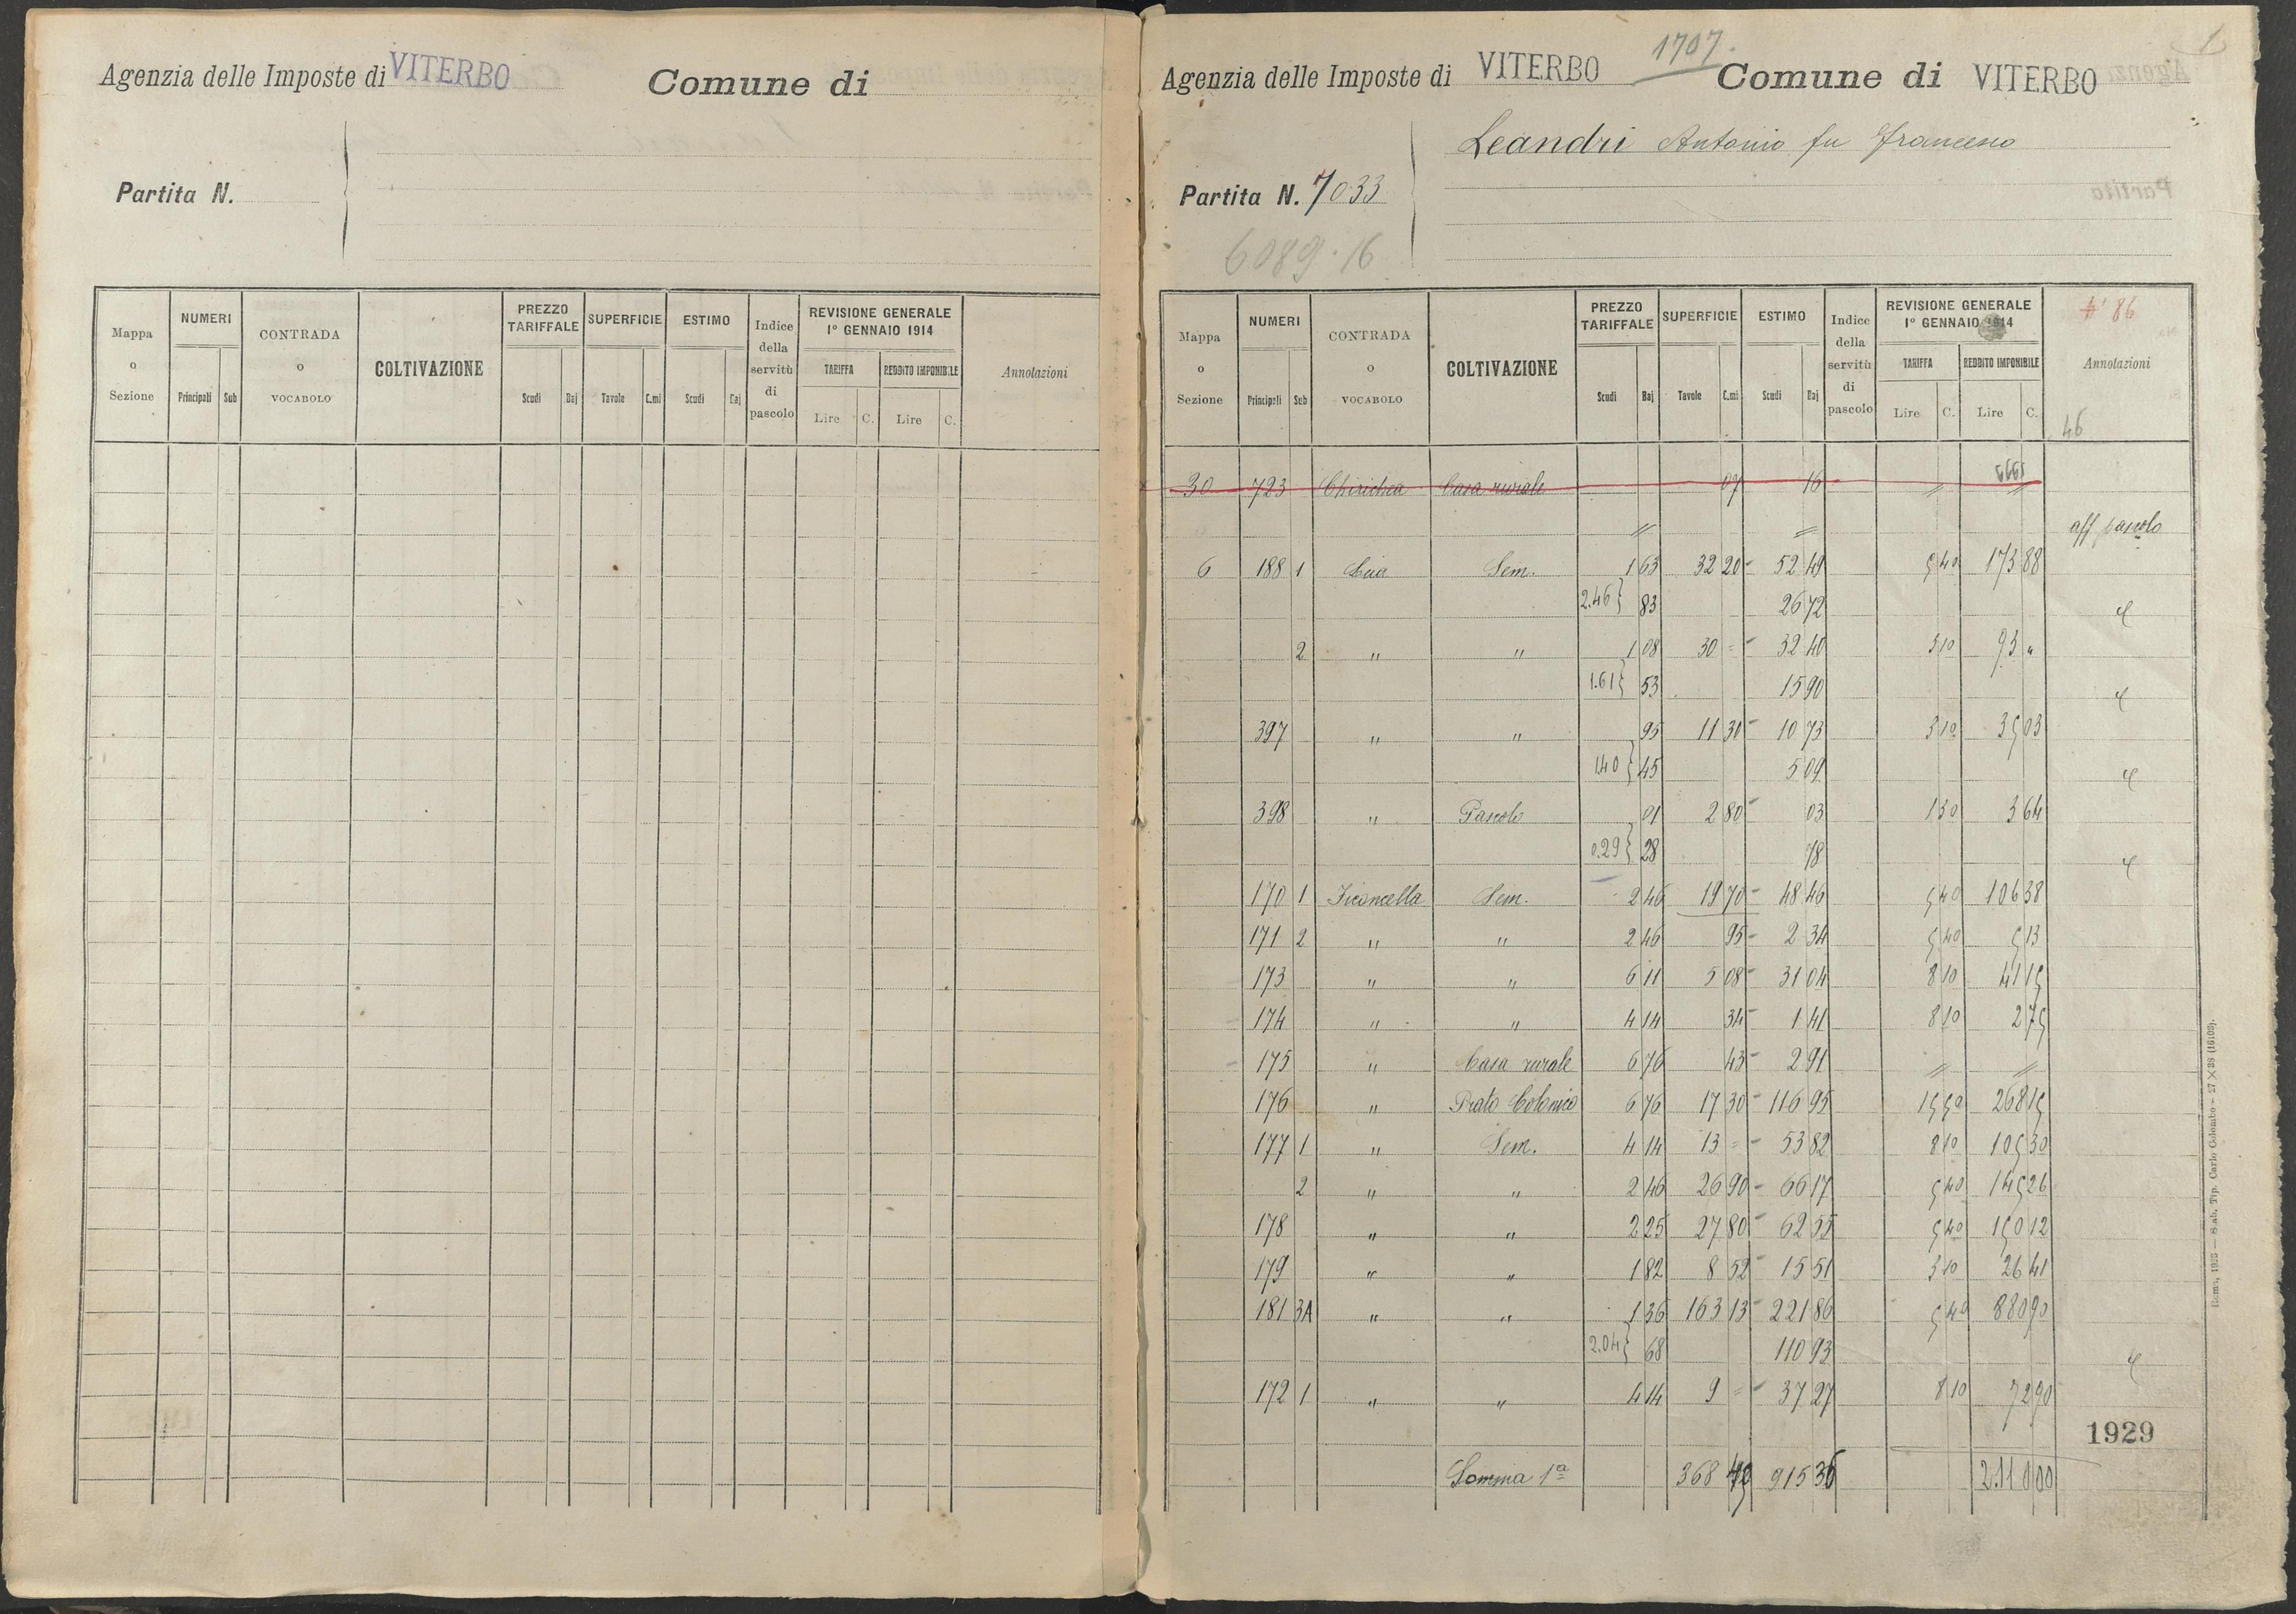 Agenzia delle Imposte di VITERBO Comune di
Partita N.
Mappa o Sezione NUMERI Principali Sub CONTRADA o VOCABOLO COLTIVAZIONE PREZZO TARIFFALE Scudi Baj SUPERFICIE Tavole C.mi ESTIMO Scudi Baj Indice della servitù di pascolo REVISIONE GENERALE 1º GENNAIO 1914 TARIFFA Lire C. REDDITO IMPONIBILE Lire C. Annotazioni
1
1707.
Agenzia delle Imposte di VITERBO Comune di VITERBO
Leandri Antonio fu Francesco
Partita N. 7033
6089.16
Mappa o Sezione NUMERI Principali Sub CONTRADA o VOCABOLO COLTIVAZIONE PREZZO TARIFFALE Scudi Baj SUPERFICIE Tavole C.mi ESTIMO Scudi Baj Indice della servitù di pascolo REVISIONE GENERALE 1º GENNAIO 1914 TARIFFA Lire C. REDDITO IMPONIBILE Lire C. Annotazioni
86
46
30 723 Chirichea Casa rurale 07 16 " "
" " aff pascolo
6 188 1 Cua Sem. 1 63 32 20 - 52 49 5 40 173 88
2.46 } 83 26 72
2 " " 1 08 30 = - 32 40 3 10 93 "
1.61 } 53 15 90
397 " " 95 11 30 - 10 73 3 10 35 03
1.40 } 45 5 09
398 " Pascolo 01 2 80 - 03 1 30 3 64
0.29 } 28 78
170 1 Ficoncella Sem. 2 46 19 70 - 48 46 5 40 106 38
171 2 " " 2 46 95 - 2 34 5 40 5 13
173 " " 6 11 5 08 - 31 04 8 10 41 15
174 " " 4 14 34 - 1 41 8 10 2 75
175 " Casa rurale 6 76 43 - 2 91 " "
176 " Prato Colonico 6 76 17 30 - 116 95 15 50 268 15
177 1 " Sem. 4 14 13 = - 53 82 8 10 105 30
2 " " 2 46 26 90 - 66 17 5 40 145 26
178 " " 2 25 27 80 - 62 55 5 40 150 12
179 " " 1 82 8 52 - 15 51 3 10 26 41
181 3A " " 1 36 163 13 - 221 86 5 40 880 90
2.04 } 68 110 93
172 1 " " 4 14 9 = - 37 27 8 10 72 90
1929
Somma 1ª 368 915 36 2.110 00
Roma, 1925 — Stab. Tip. Carlo Colombo - 27 X 38 (16102).